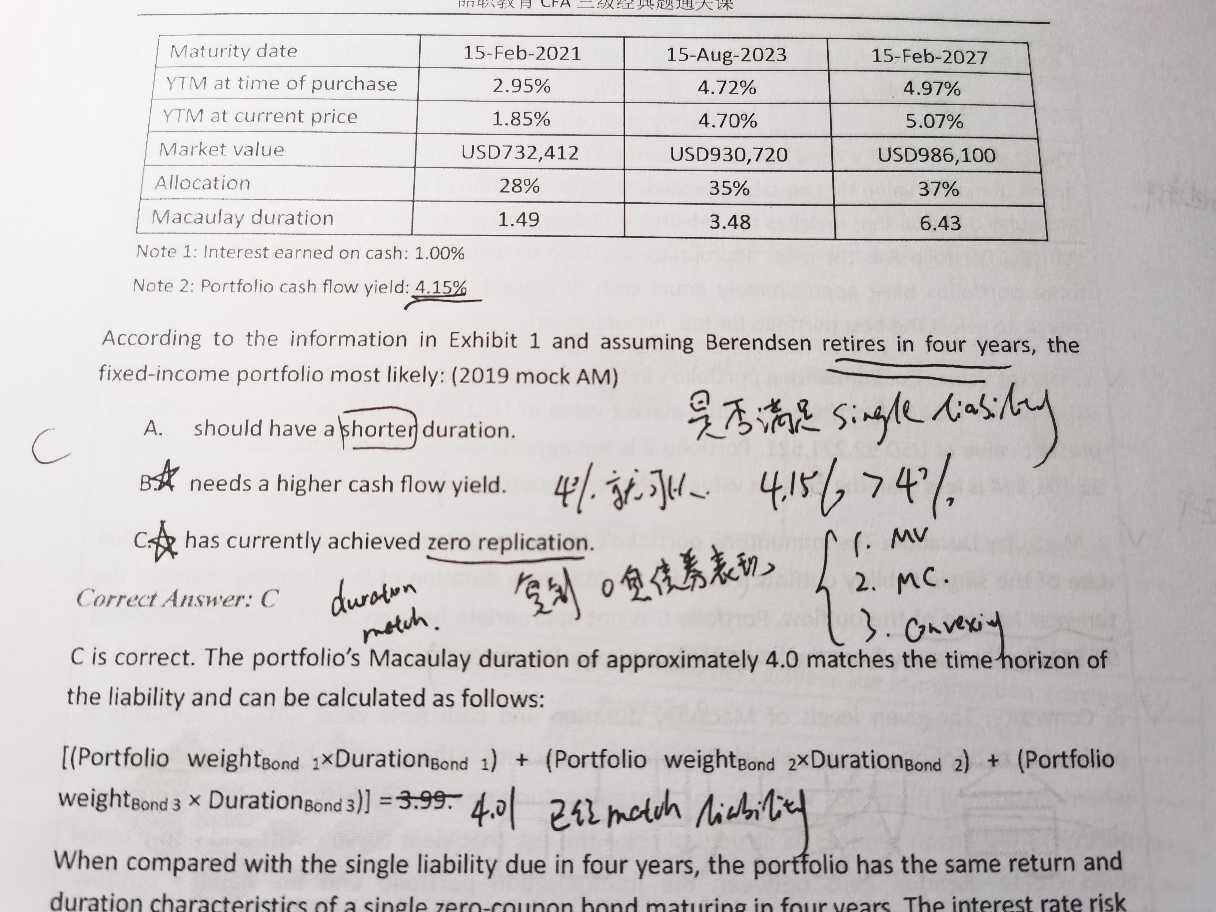 品职教育 CFA 三级经典题通关课
Maturity date 15-Feb-2021 15-Aug-2023 15-Feb-2027
YTM at time of purchase 2.95% 4.72% 4.97%
YTM at current price 1.85% 4.70% 5.07%
Market value USD732,412 USD930,720 USD986,100
Allocation 28% 35% 37%
Macaulay duration 1.49 3.48 6.43
Note 1: Interest earned on cash: 1.00%
Note 2: Portfolio cash flow yield: 4.15%
According to the information in Exhibit 1 and assuming Berendsen retires in four years, the
fixed-income portfolio most likely: (2019 mock AM)
是否满足 single liability
A. should have a shorter duration.
C
B. needs a higher cash flow yield. 4%就可以 4.15% > 4%
C. has currently achieved zero replication.
1. MV
复制 0息债券表现
2. MC.
Correct Answer: C
duration
match.
3. Convexity
C is correct. The portfolio's Macaulay duration of approximately 4.0 matches the time horizon of
the liability and can be calculated as follows:
[(Portfolio weightBond 1×DurationBond 1) + (Portfolio weightBond 2×DurationBond 2) + (Portfolio
weightBond 3 × DurationBond 3)] = 3.99. 4.01 已经 match liability
When compared with the single liability due in four years, the portfolio has the same return and
duration characteristics of a single zero-coupon bond maturing in four years. The interest rate risk